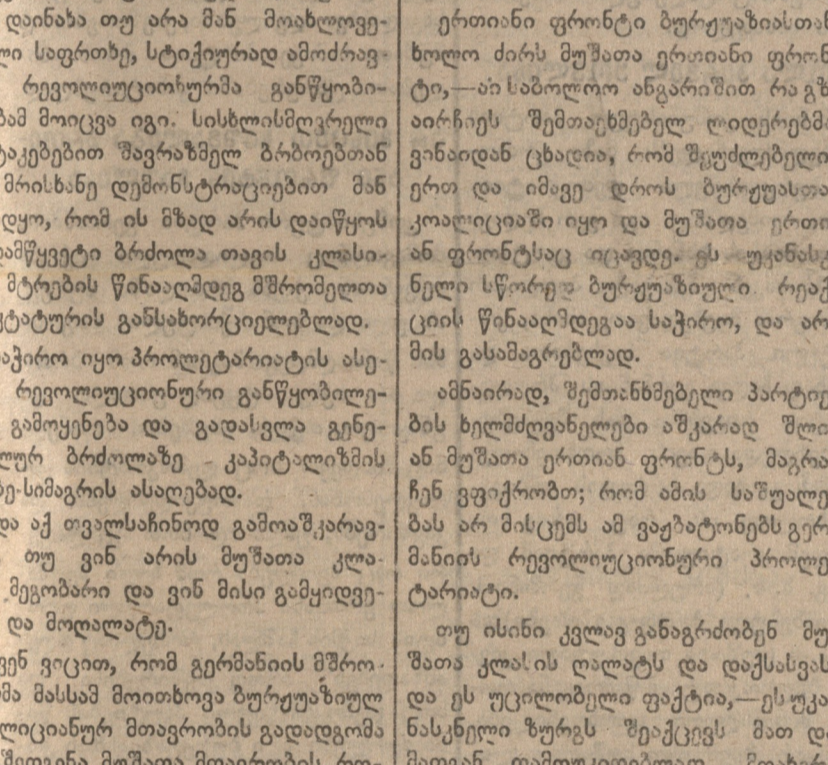 დაინახა თუ არა მან მოახლოვე-
ლი საფრთხე, სტიქიურად ამოძრავ-
რევოლიუციონურმა განწყობი-
ბამ მოიცვა იგი. სისხლისმღვრელი
ტაკებებით შავრაზმელ ბრბოებთან
მრისხანე დემონსტრაციებით მან
დყო, რომ ის მზად არის დაიწყოს
ამწყვეტი ბრძოლა თავის კლასი-
მტრების წინააღმდეგ მშრომელთა
ქტატურის განსახორციელებლად.
აჭირო იყო პროლეტარიატის ასე-
რევოლიუციონური განწყობილე-
გამოყენება და გადასვლა გენე-
ლურ ბრძოლაზე კაპიტალიზმის
ბე-სიმაგრის ასაღებად.
და აქ თვალსაჩინოდ გამოაშკარავ-
თუ ვინ არის მუშათა კლა-
მეგობარი და ვინ მისი გამყიდვე-
და მოღალატე.
ვენ ვიცით, რომ გერმანიის მშრო-
მა მასსამ მოითხოვა ბურჟუაზიულ
ლიციანურ მთავრობის გადადგომა
შედგენა მუშათა მთავრობის რო-
ერთიანი ფრონტი ბურჟუაზიასთან
ხოლო ძირს მუშათა ერთიანი ფრონ
ტი,—აი საბოლოო ანგარიშით რა გზ
აირჩიეს შემთანხმებელ ლიდერებმა
ვინაიდან ცხადია, რომ შეუძლებელი
ერთ და იმავე დროს ბურჟუასთა
კოალიციაში იყო და მუშათა ერთი
ან ფრონტსაც იცავდე. ეს უკანასკ
ნელი სწორედ ბურჟუაზიული რეაქ
ციის წინააღმდეგაა საჭირო, და არ
მის გასამაგრებლად.
ამნაირად, შემთანხმებელი პარტიე
ბის ხელმძღვანელები აშკარად შლი
ან მუშათა ერთიან ფრონტს, მაგრა
ჩენ ვფიქრობთ; რომ ამის საშუალე
ბას არ მისცემს ამ ვაჟბატონებს გერ
მანიის რევოლიუციონური პროლე
ტარიატი.
თუ ისინი კვლავ განაგრძობენ მუ
შათა კლასის ღალატს და დაქსასვას
და ეს უცილობელი ფაქტია,—ეს უკა
ნასკნელი ზურგს შეაქცევს მათ დ